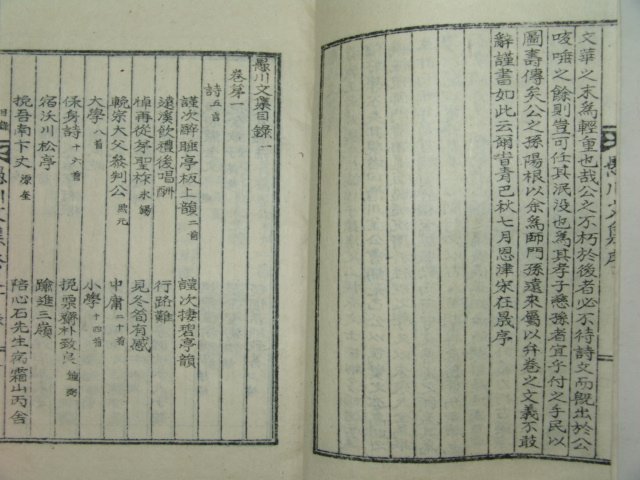 文華之末爲輕重也哉公之不朽於後者必不待詩文而旣出於公
咳唾之餘則豈可任其泯沒也爲其孝子慈孫者宜乎付之手民以
圖壽傳矣公之孫陽根以余爲師門孫遠來屬以弁卷之文義不敢
辭謹書如此云爾昔青巳秋七月恩津宋在晟序
愚川文集序
愚川文集目錄一
卷第一
詩五言
謹次辭睡亭板上韻二首
謹次捿碧亭韻
遠溪飮禮後唱酬
行路難
悼再從茅聖
見冬筍有感
輓宗大父參判公
大學八首
中庸二十首
小學十四首
保身詩十六首
挽栗齋朴致良
宿沃川松亭
踰進三嶺
挽吾南卞丈
陪心石先生宿霜山丙舍
目錄
愚川文集卷之一